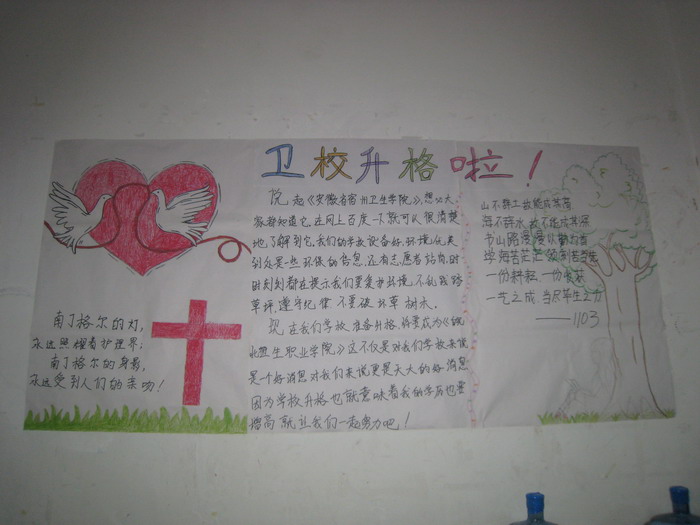 卫校升格啦!
南丁格尔的灯,
永远照耀着护理界;
南丁格尔的身影,
永远受到人们的亲吻!
说起《安徽省宿州卫生学院》,想必大
家都知道它,在网上百度一下就可以很清楚
地了解到它,我们的教学设备好,环境优美
到处是一些环保的信息,还有志愿者站岗,时
时刻刻都在提示我们要爱护环境,不乱践踏
草坪,遵守纪律,不要破坏草树木.
现在我们学校准备升格,将要成为《皖
北卫生职业学院》这不仅是对我们学校来说
是个好消息对我们来说更是大大的好消息
因为学校升格也就意味着我们的学历也要
增高就让我们一起努力吧!
山不辞土故能成其高
海不辞水故不能成其深
书山路漫漫以勤为首
学海苦茫茫
一份耕耘.一份收获
一艺之成 当尽毕生之力
——1103